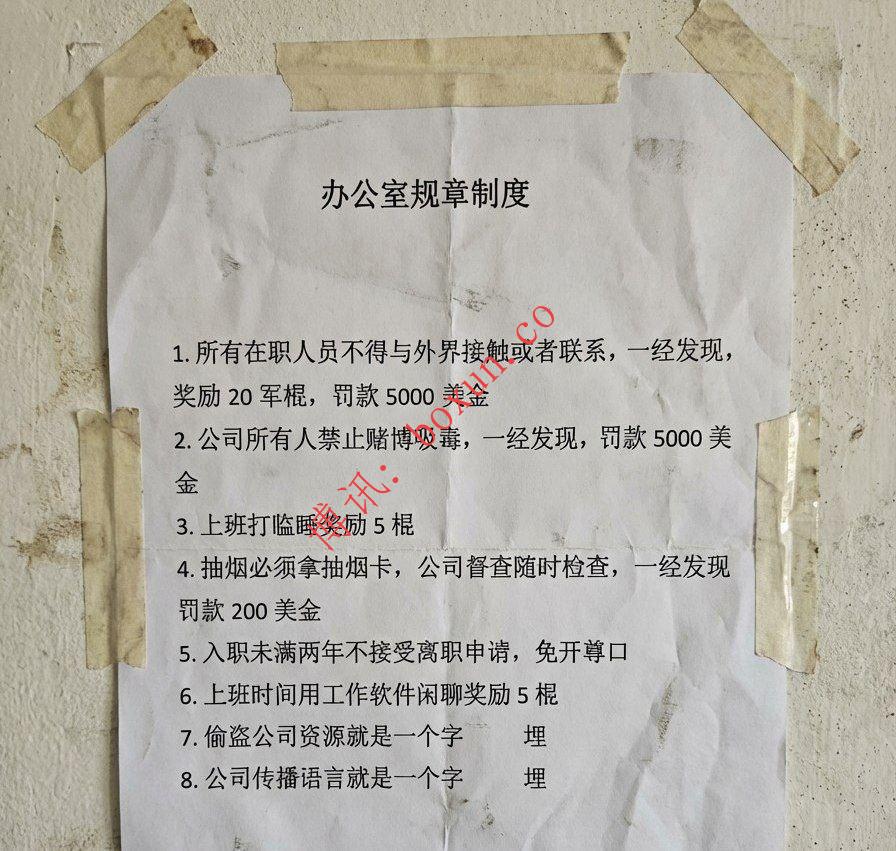 办公室规章制度
1. 所有在职人员不得与外界接触或者联系，一经发现，
奖励 20 军棍，罚款 5000 美金
2. 公司所有人禁止赌博吸毒，一经发现，罚款 5000 美
金
3. 上班打临睡奖励 5 棍
4. 抽烟必须拿抽烟卡，公司督查随时检查，一经发现
罚款 200 美金
5. 入职未满两年不接受离职申请，免开尊口
6. 上班时间用工作软件闲聊奖励 5 棍
7. 偷盗公司资源就是一个字 埋
8. 公司传播语言就是一个字 埋
博讯：boxun.co